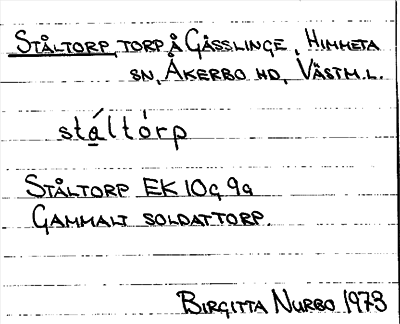 STÅLTORP, TORP Å GÄSSLINGE, HIMMETA
SN, ÅKERBO HD, VÄSTM.L.
stá̱ltórp
STÅLTORP EK 10G 9a
GAMMALT SOLDATTORP.
BIRGITTA NURBO 1973